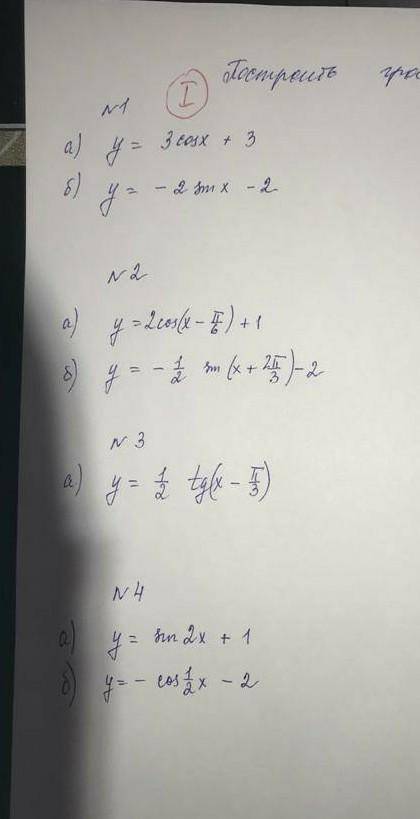 I Построить
№1
а) y = 3cosx + 3
б) y = - 2 sin x - 2
№2
а) y = 2cos(x - π/6) + 1
б) y = - 1/2 sin (x + 2π/3) - 2
№3
а) y = 1/2 tg(x - π/3)
№4
а) y = sin 2x + 1
б) y = - cos 1/2 x - 2